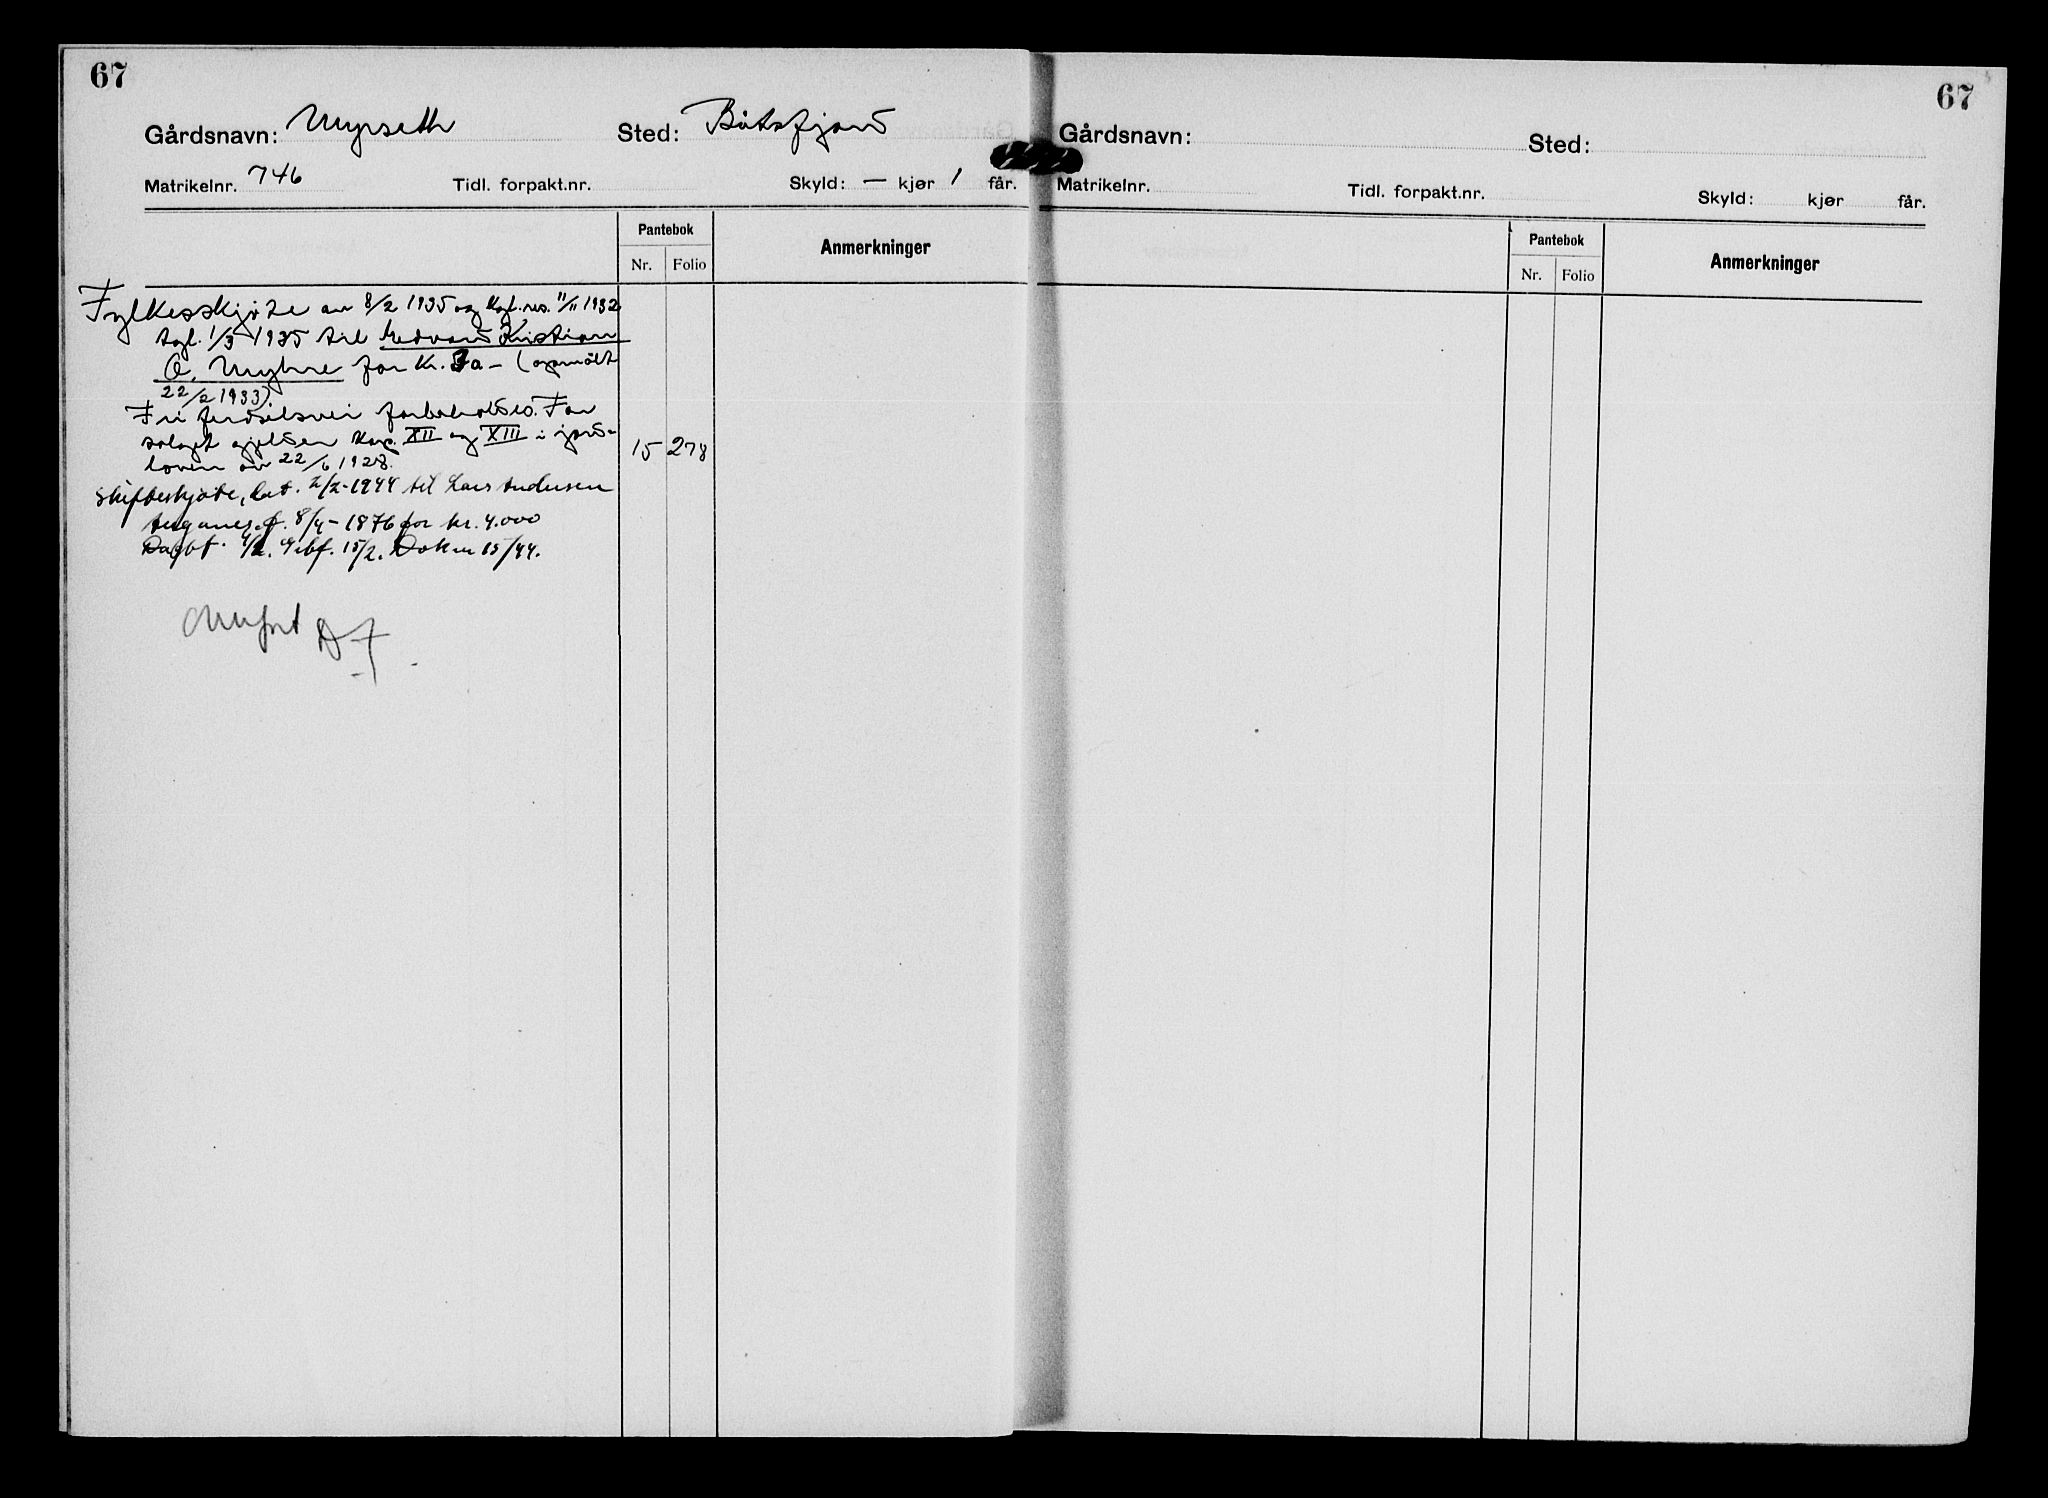 67
Gårdsnavn: Myrseth Sted: Båtsfjord
Matrikelnr. 746 Tidl. forpakt.nr. Skyld: — kjør 1 får.
Pantebok
Nr. Folio
Anmerkninger
Fylkesskjøte av 8/2 1935 og Kgl. res. 11/11 1932
tgl. 1/3 1935 til Edvard Kristian
O. Myhre for Kr. (opmålt
22/2 1933)
Fri ferdselsvei forbeholdes. For
salget gjelder kap. XII og XIII i jord-
loven av 22/6 1928. 15 278
Skifteskjøte, dat. 2/2-1944 til Lars Andersen
f. 8/4-1876 for kr. 4.000
Dagbf. 15/2. Dok nr 15/44.
67
Gårdsnavn: Sted:
Matrikelnr. Tidl. forpakt.nr. Skyld: kjør får.
Pantebok
Nr. Folio
Anmerkninger